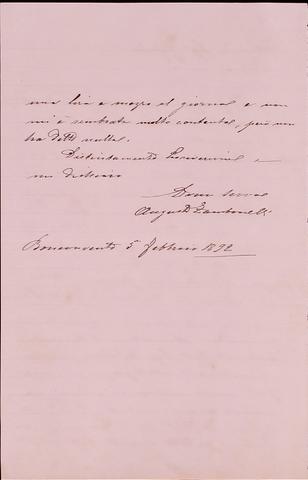 una lira e mezzo al giorno e non
mi è sembrata molto contenta, però non
ha detto nulla.
Distintamente riverirvi e
mi dichiaro
Devm servo
Augusto Zambonelli
Benevento 5 febbraio 1892